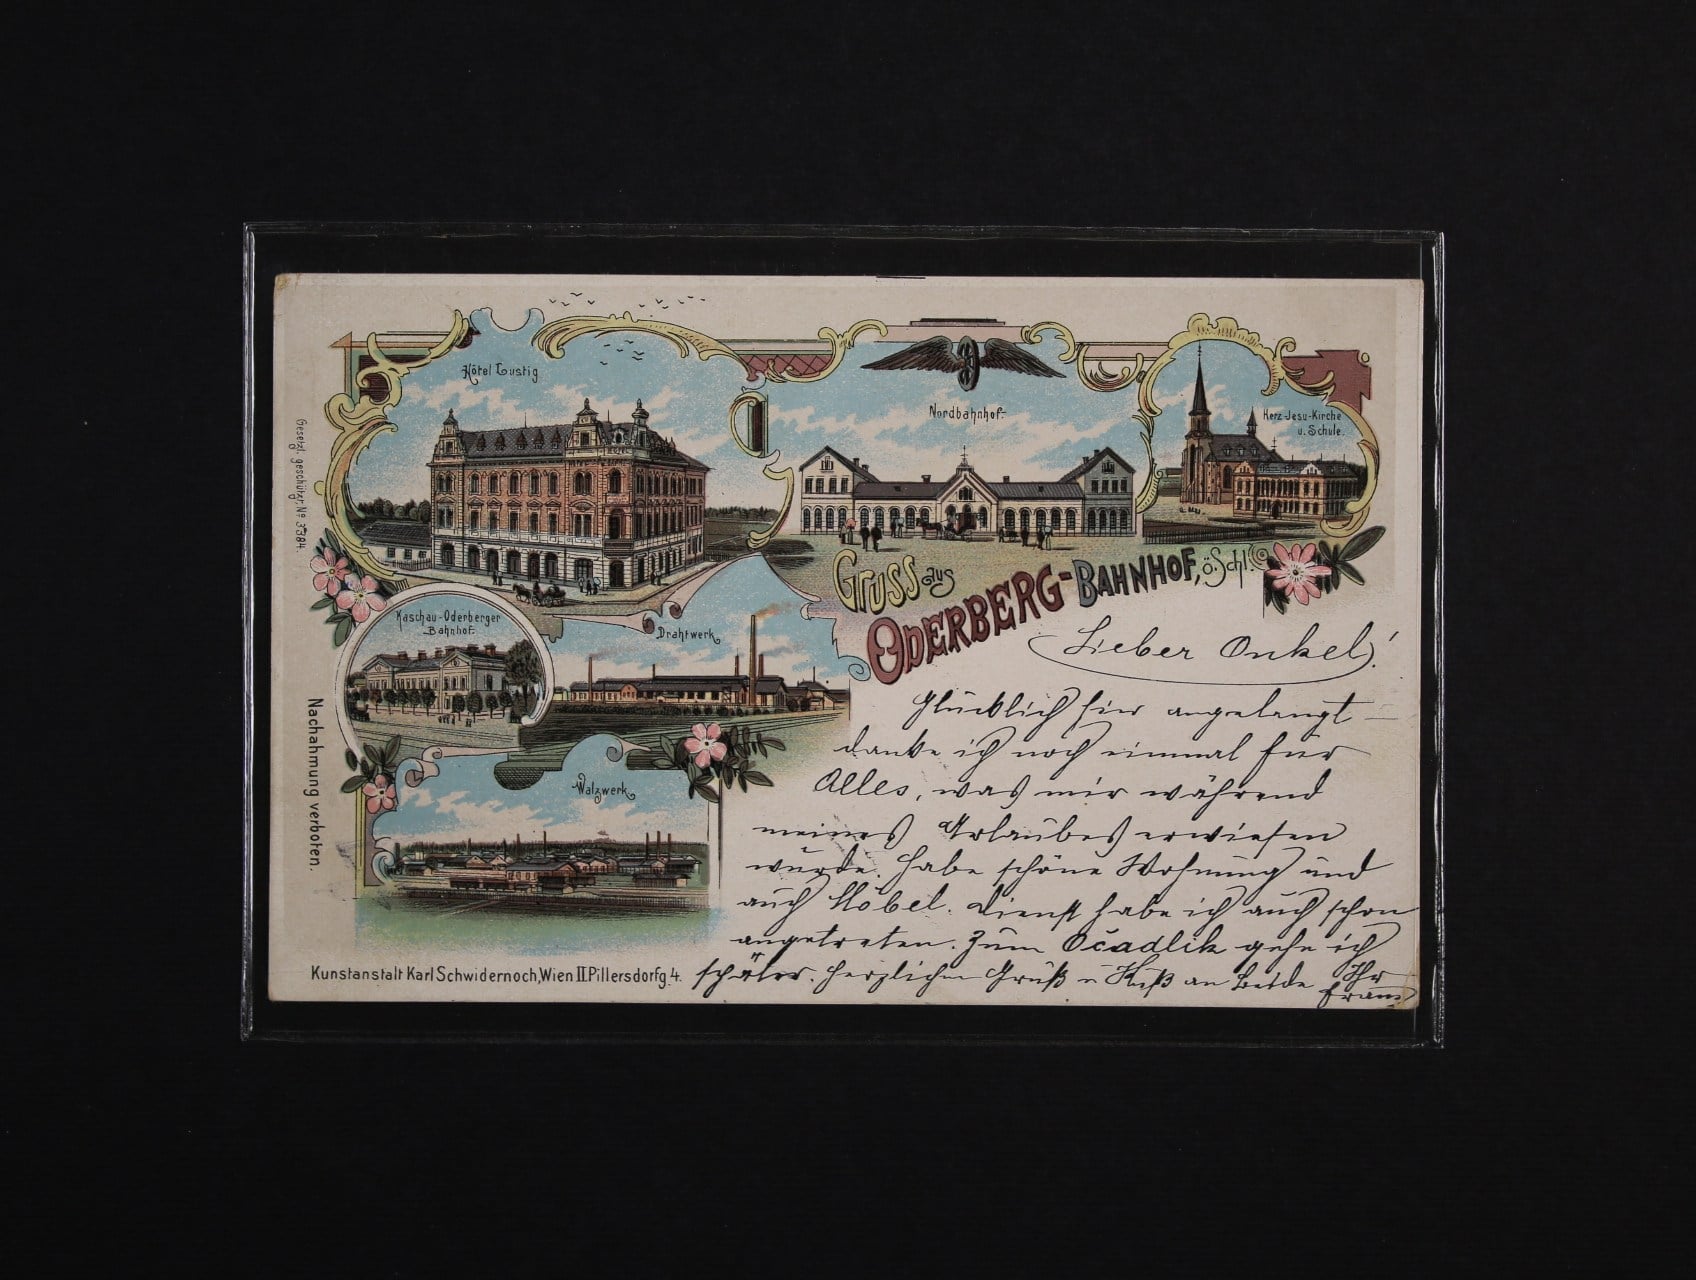 Hôtel Lustig
Nordbahnhof.
Herz-Jesu-Kirche
u. Schule.
Gesetzl. geschützt. No 3384.
Gruss aus
Oderberg-Bahnhof, ö. Schl.
Kaschau-Oderberger
Bahnhof.
Drahtwerk
Walzwerk
Nachahmung verboten.
Kunstanstalt Karl Schwidernoch, Wien II. Pillersdorfg. 4.
Lieber Onkel!
Glücklich hier angelangt –
danke ich noch einmal für
Alles, was mir während
meines Urlaubes erwiesen
wurde. Habe schöne Wohnung und
auch Möbel. Dienst habe ich auch schon
angetreten. Zum Očadlik gehe ich
später. Herzlichen Gruß u Kuß an Beide Ihr
Franz